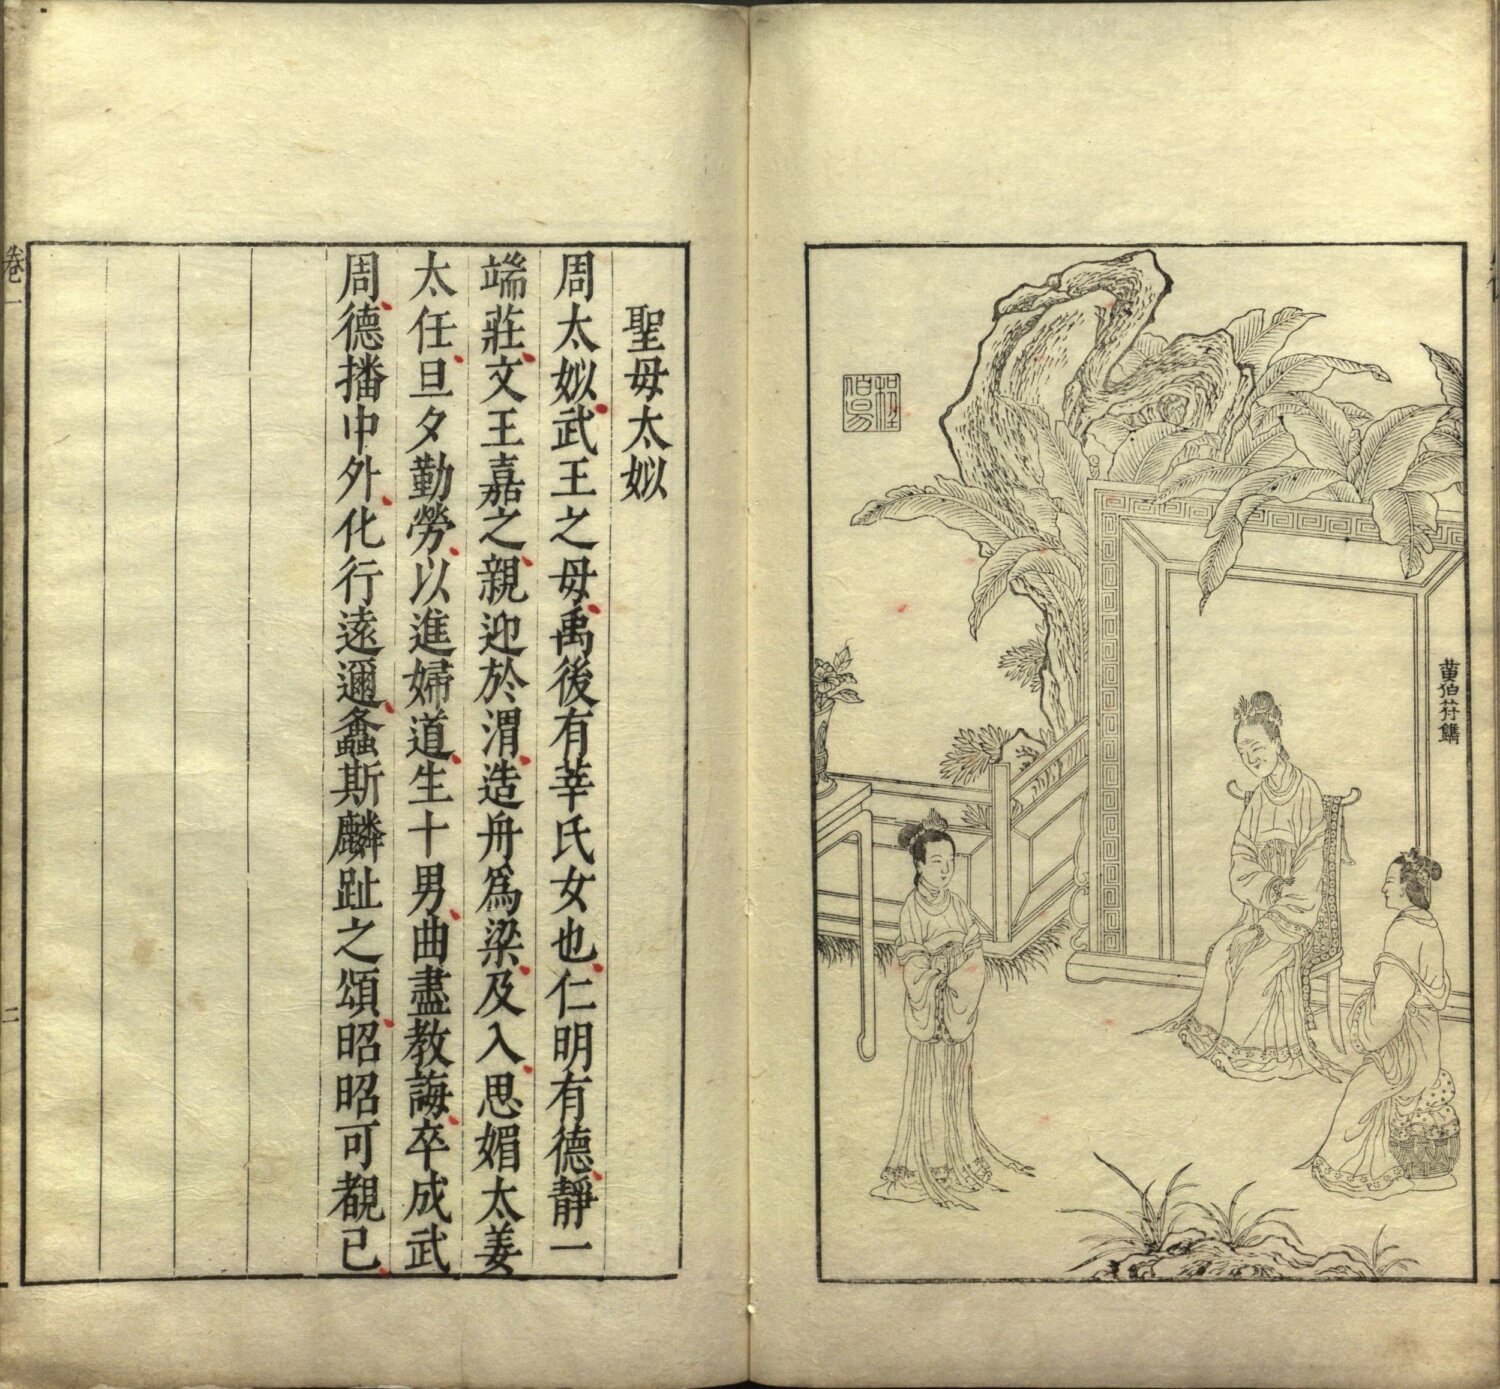 黃伯符鐫
聖母太姒
周太姒武王之母禹後有莘氏女也仁明有德靜一
端莊文王嘉之親迎於渭造舟爲梁及入思媚太姜
太任旦夕勤勞以進婦道生十男曲盡教誨卒成武
周德播中外化行遠邇螽斯麟趾之頌昭昭可覩已
卷一
二